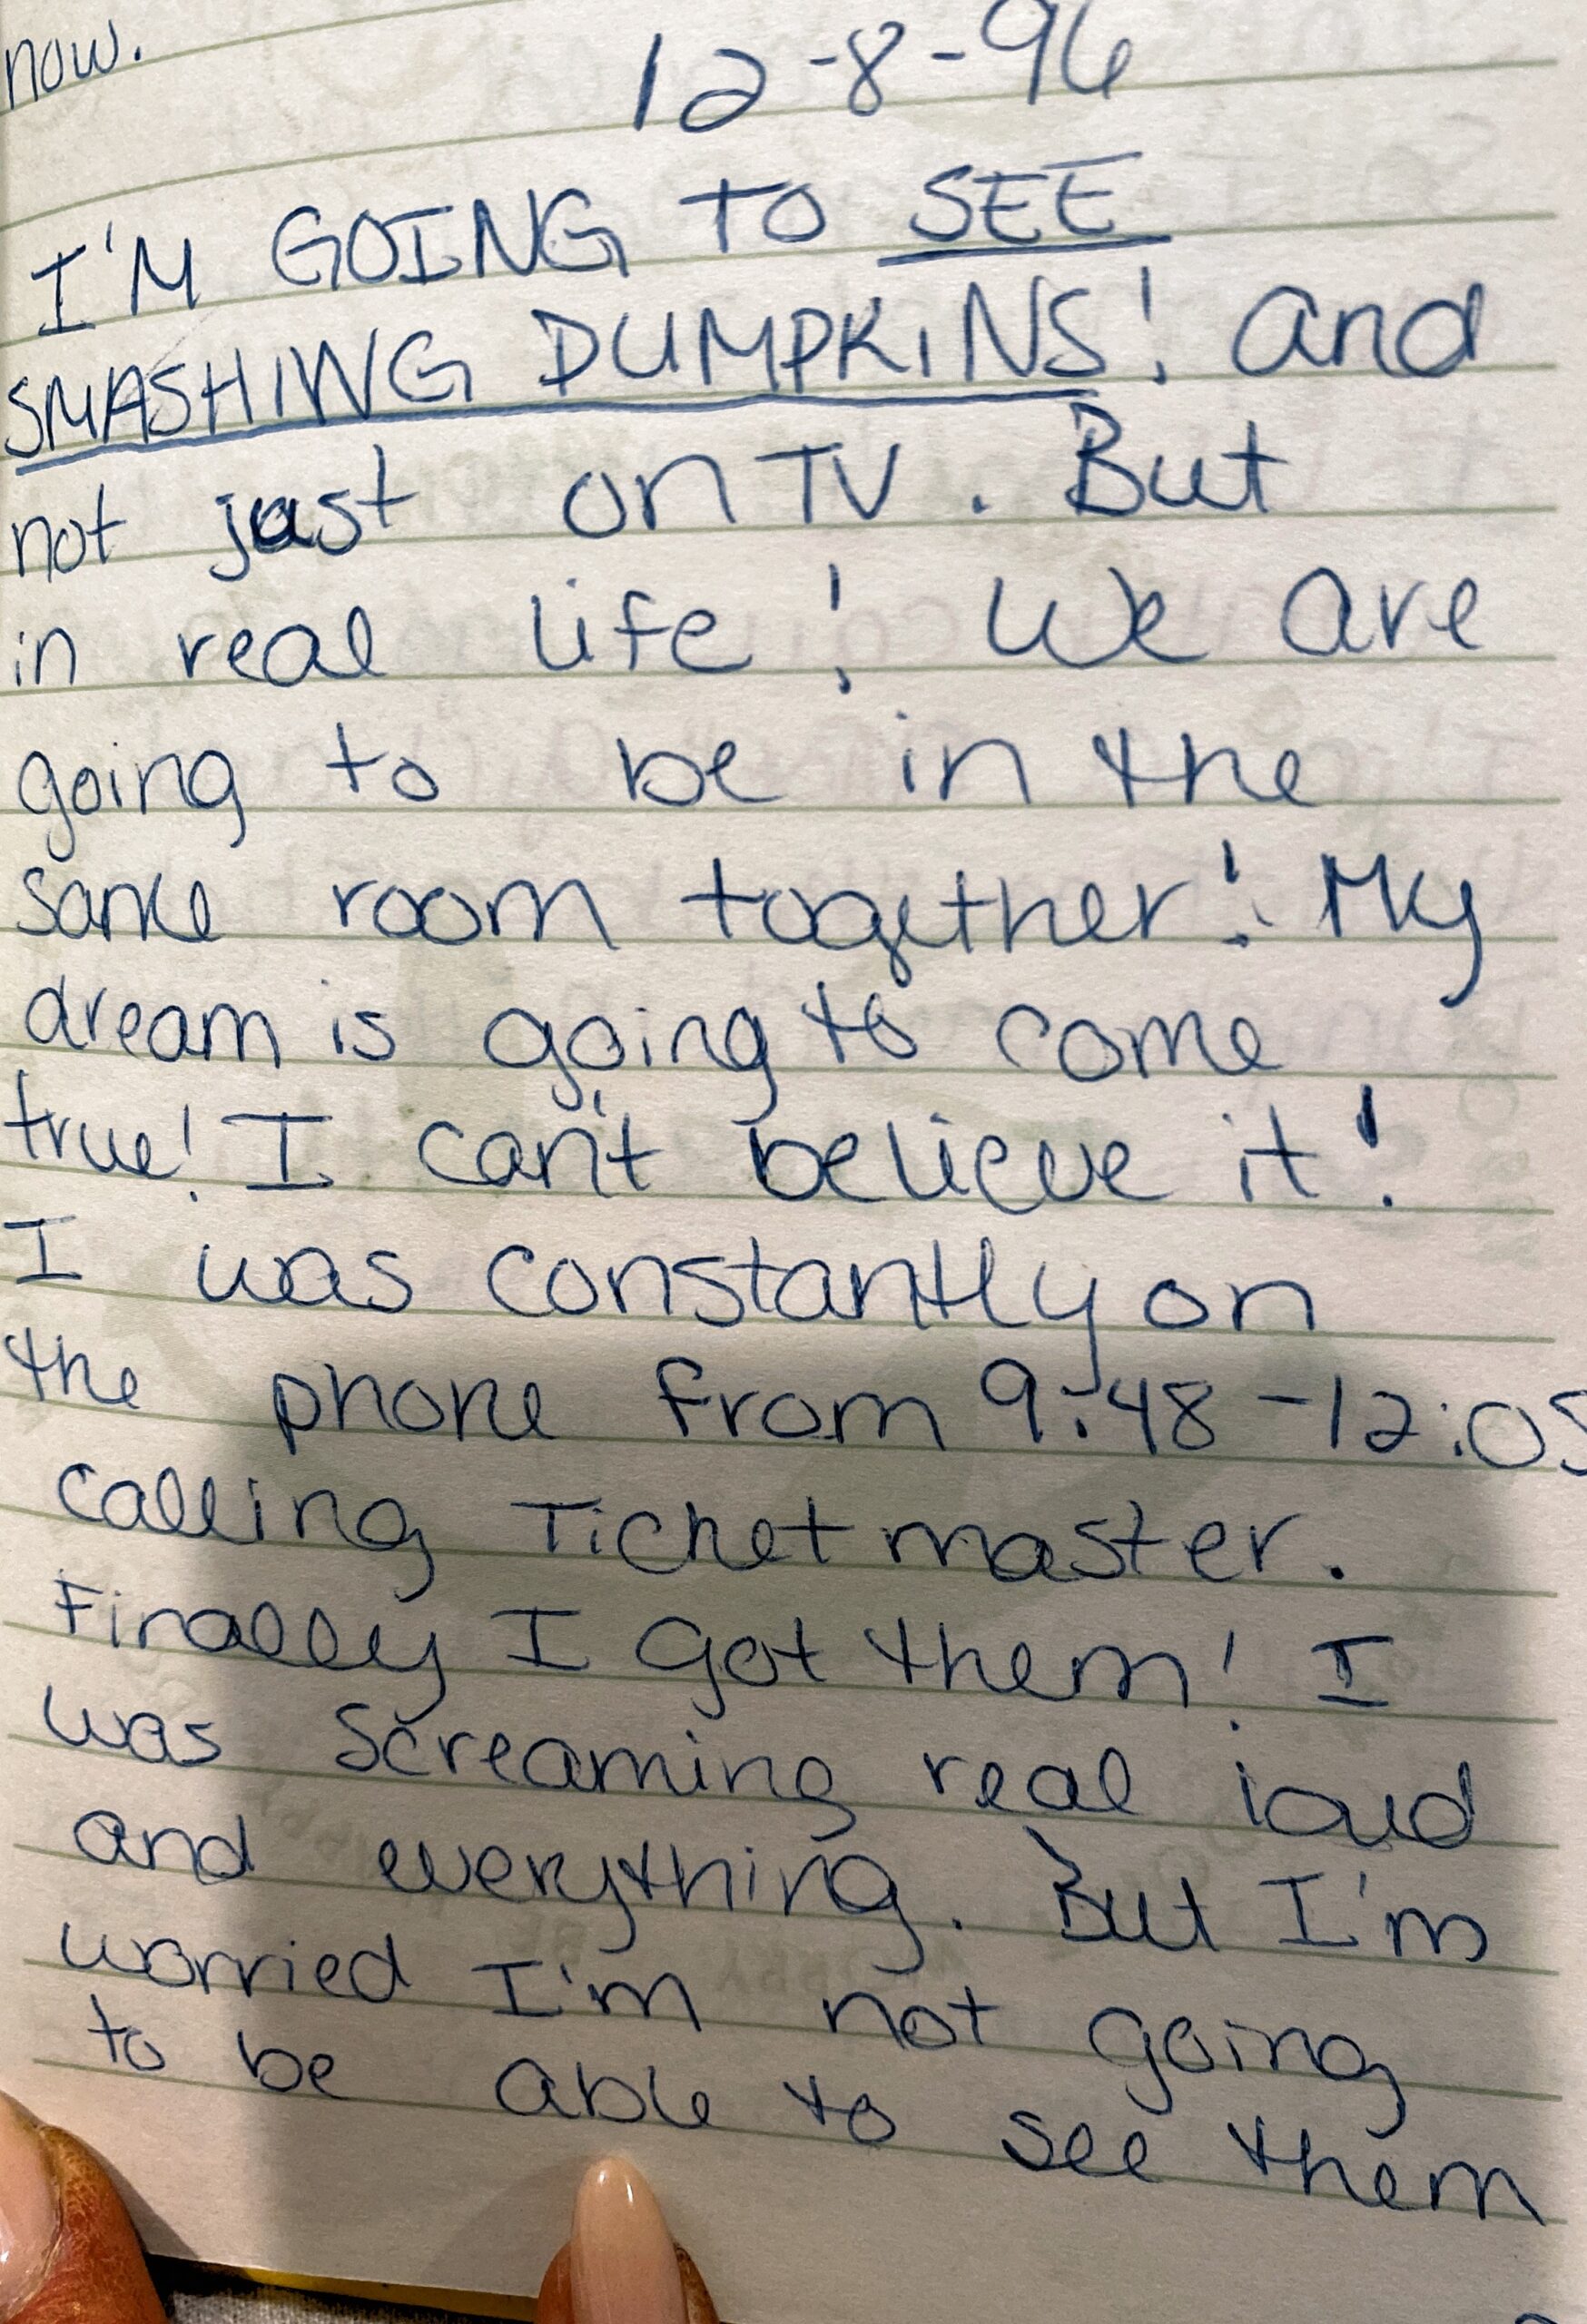 now.
12-8-96
I'M GOING TO SEE
SMASHING PUMPKINS! and
not just on TV. But
in real life! We are
going to be in the
same room together! My
dream is going to come
true! I can't believe it!
I was constantly on
the phone from 9:48-12:05
calling Ticketmaster.
Finally I got them! I
was screaming real loud
and everything. But I'm
worried I'm not going
to be able to see them